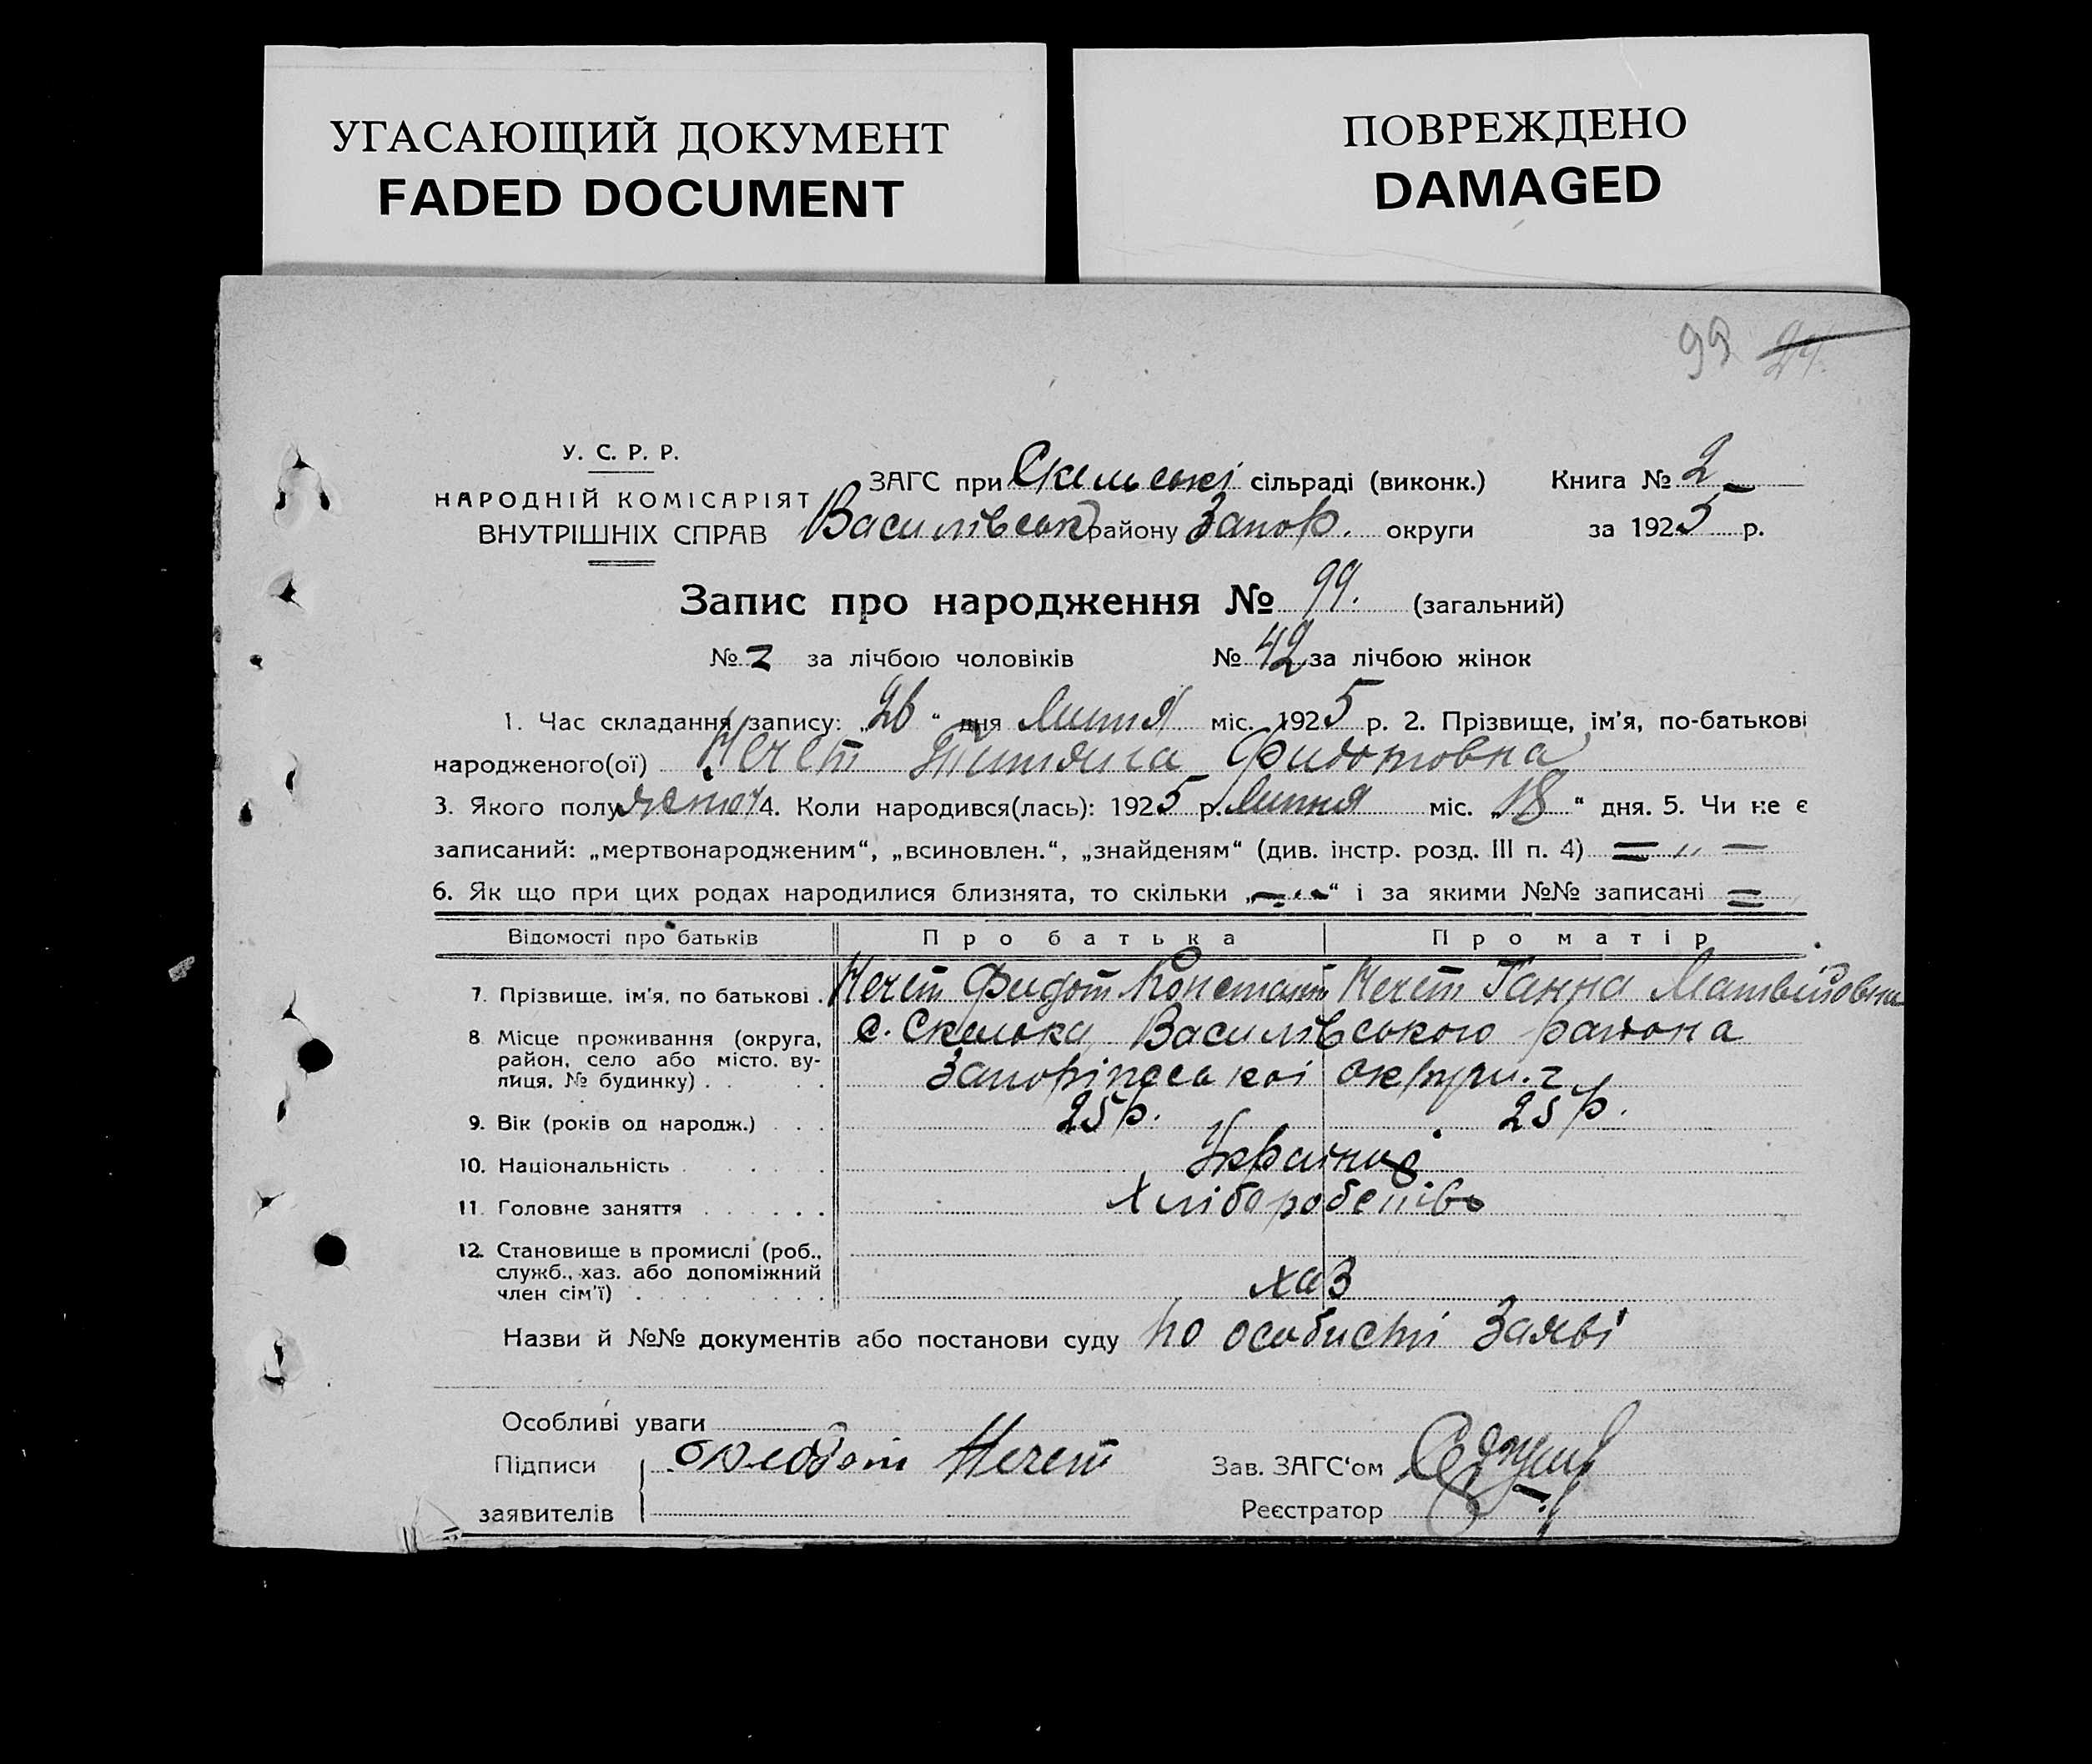 УГАСАЮЩИЙ ДОКУМЕНТ
FADED DOCUMENT
ПОВРЕЖДЕНО
DAMAGED
99 24.
У. С. Р. Р.
НАРОДНІЙ КОМІСАРІЯТ
ВНУТРІШНІХ СПРАВ
ЗАГС при Скельскі сільраді (виконк.) Книга № 2
Василівськ району Запор. округи за 1925 р.
Запис про народження № 99. (загальний)
№ за лічбою чоловіків № 42 за лічбою жінок
1. Час складання запису: „26“ дня Липня міс. 1925 р. 2. Прізвище, ім'я, по-батькові
народженого(ої) Нечет Титяна Фидотовна
3. Якого полу 4. Коли народився(лась): 1925 р. Липня міс. „18“ дня. 5. Чи не є
записаний: „мертвонародженим“, „всиновлен.“, „знайденям“ (див. інстр. розд. III п. 4) = „ —
6. Як що при цих родах народилися близнята, то скільки „ “ і за якими №№ записані =
Відомості про батьків Про батька Про матір
7. Прізвище, ім'я, по батькові . Нечет Фидот Констант Нечет Ганна Матвійовна
8. Місце проживання (округа, район, село або місто, вулиця, № будинку) . . с. Скельки Василівського района
Запоріжської округи
9. Вік (років од народж.) . . . 25 р. 25 р.
10. Національність . . . . . Україн
11. Головне заняття . . . . . . Хлібороб
12. Становище в промислі (роб., служб., хаз. або допоміжний член сім'ї) . . . . . . . хаз
Назви й №№ документів або постанови суду по особисті Заяві
Особливі уваги
Підписи Нечет Зав. ЗАГС'ом
заявителів Реєстратор